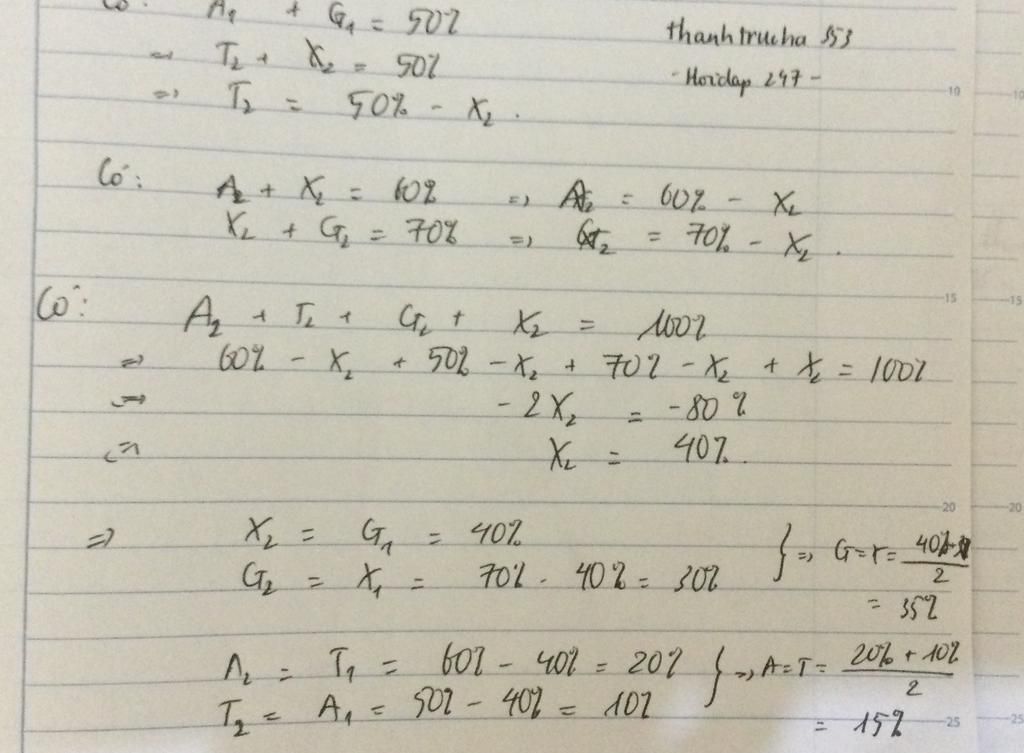 Có: A₁ + G₁ = 50%
thanhtrucha 353
=> T₂ + X₂ = 50%
- Hoidap 247 -
=> T₂ = 50% - X₂.
Có: A₂ + X₂ = 60% => A₂ = 60% - X₂
X₂ + G₂ = 70% => G₂ = 70% - X₂.
Có: A₂ + T₂ + G₂ + X₂ = 100%
=> 60% - X₂ + 50% - X₂ + 70% - X₂ + X₂ = 100%
=> -2X₂ = -80%
=> X₂ = 40%.
=> X₂ = G₁ = 40%
G₂ = X₁ = 70% - 40% = 30%
} => G = X = 40% + / 2
= 35%
A₂ = T₁ = 60% - 40% = 20%
T₂ = A₁ = 50% - 40% = 10%
} => A = T = 20% + 10% / 2
= 15%
10
10
15
15
20
20
25
25